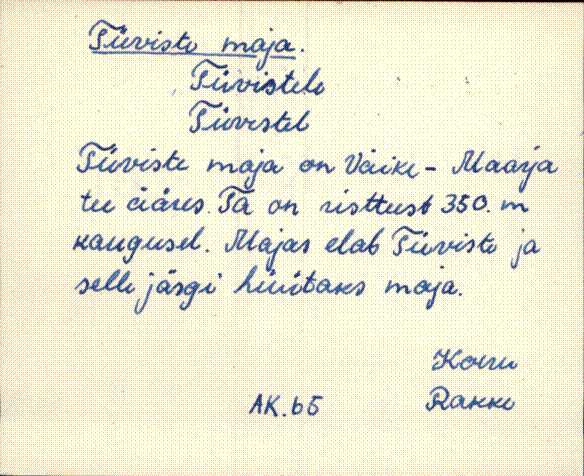 Tiiviste maja.
Tiivistele
Tiivistel
Tiiviste maja on Väike-Maarja
tee ääres. Ta on risttest 350. m
kaugusel. Majas elab Tiiviste ja
selle järgi hüütaks maja.
Koeru
AK. 65 Rakke